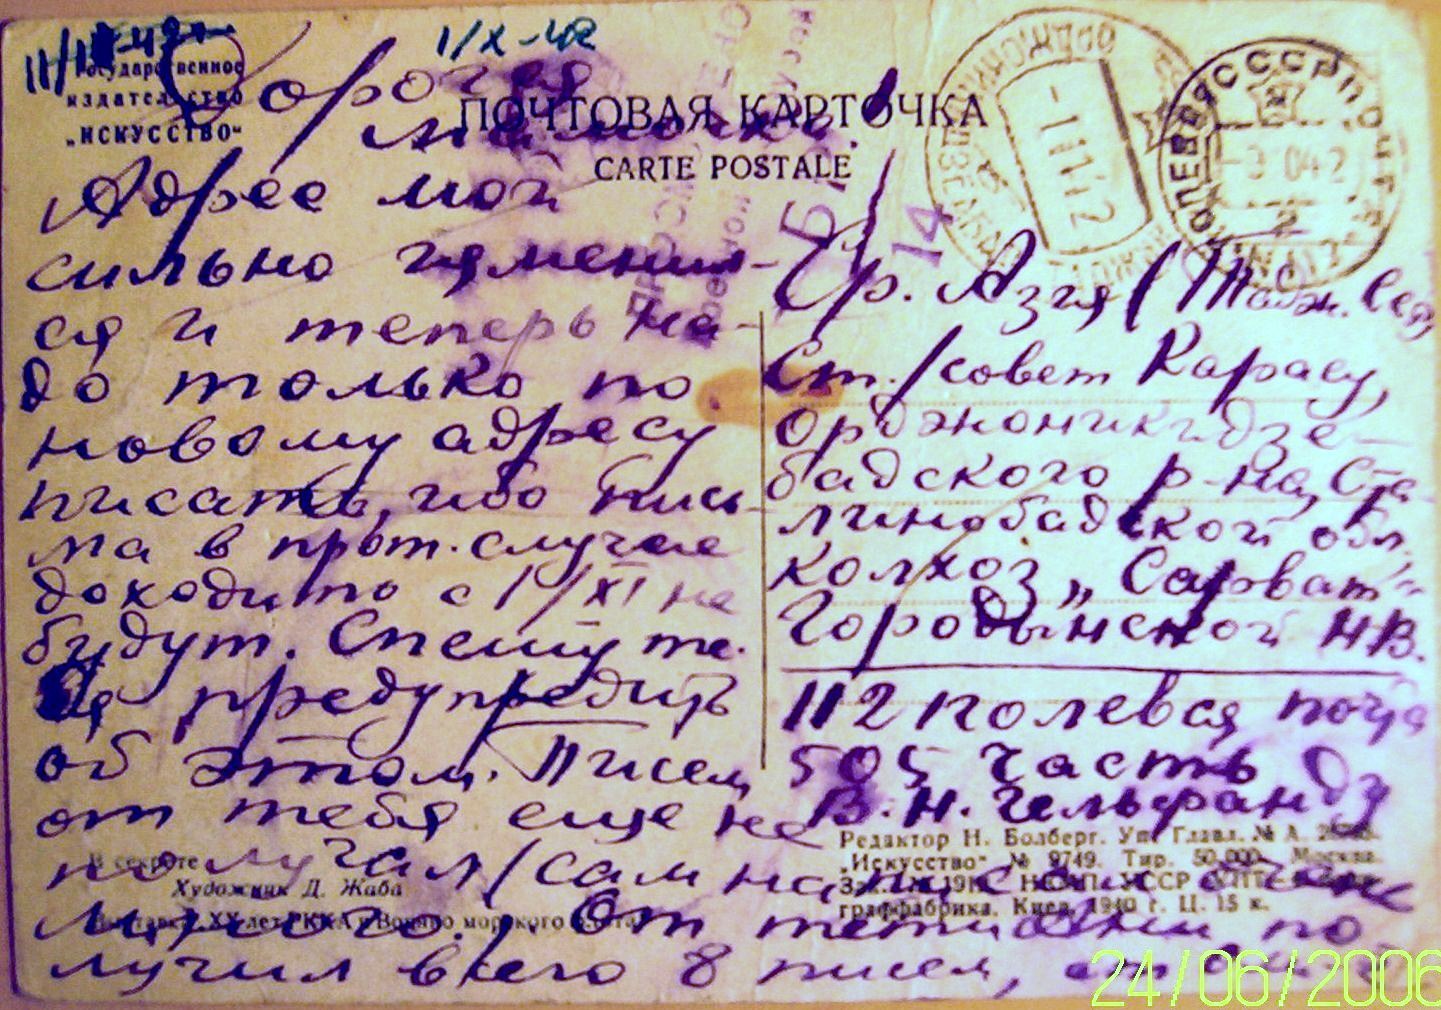 11/IX-42г. 1/X-42
Государственное
издательство
„ИСКУССТВО“
ПОЧТОВАЯ КАРТОЧКА
CARTE POSTALE
Дорогая
мамочка.
Адрес мой
сильно изменил-
ся и теперь на-
до только по
новому адресу
писать, ибо пись-
ма в прот. случае
доходить с 1/XI не
будут. Спешу те-
бя предупредить
об этом. Писем
от тебя еще не
получал (сам написал очень
много). От тети Ани по
лучил всего 8 писем, от
Ср. Азия (Тадж.
Ст./совет Карасу,
Орджоникидзе-
бадского р-на, Ста-
линобадской обл.
колхоз „Сарват“
Городынской Н.В.
112 полевая почта
505 часть
В.Н. Гельфанду
14
ПОЛЕВАЯ ПОЧТА
СССР
-1 11 42
В секрете
Художник Д. Жаба
Выставка „XX лет РККА и Военно морского флота“
Редактор Н. Болберг. Уп. Главл. № А.
„Искусство“ № 9749. Тир. 50.000. Москва
граффабрика. Киев, 1940 г. Ц. 15 к.
24/06/2006